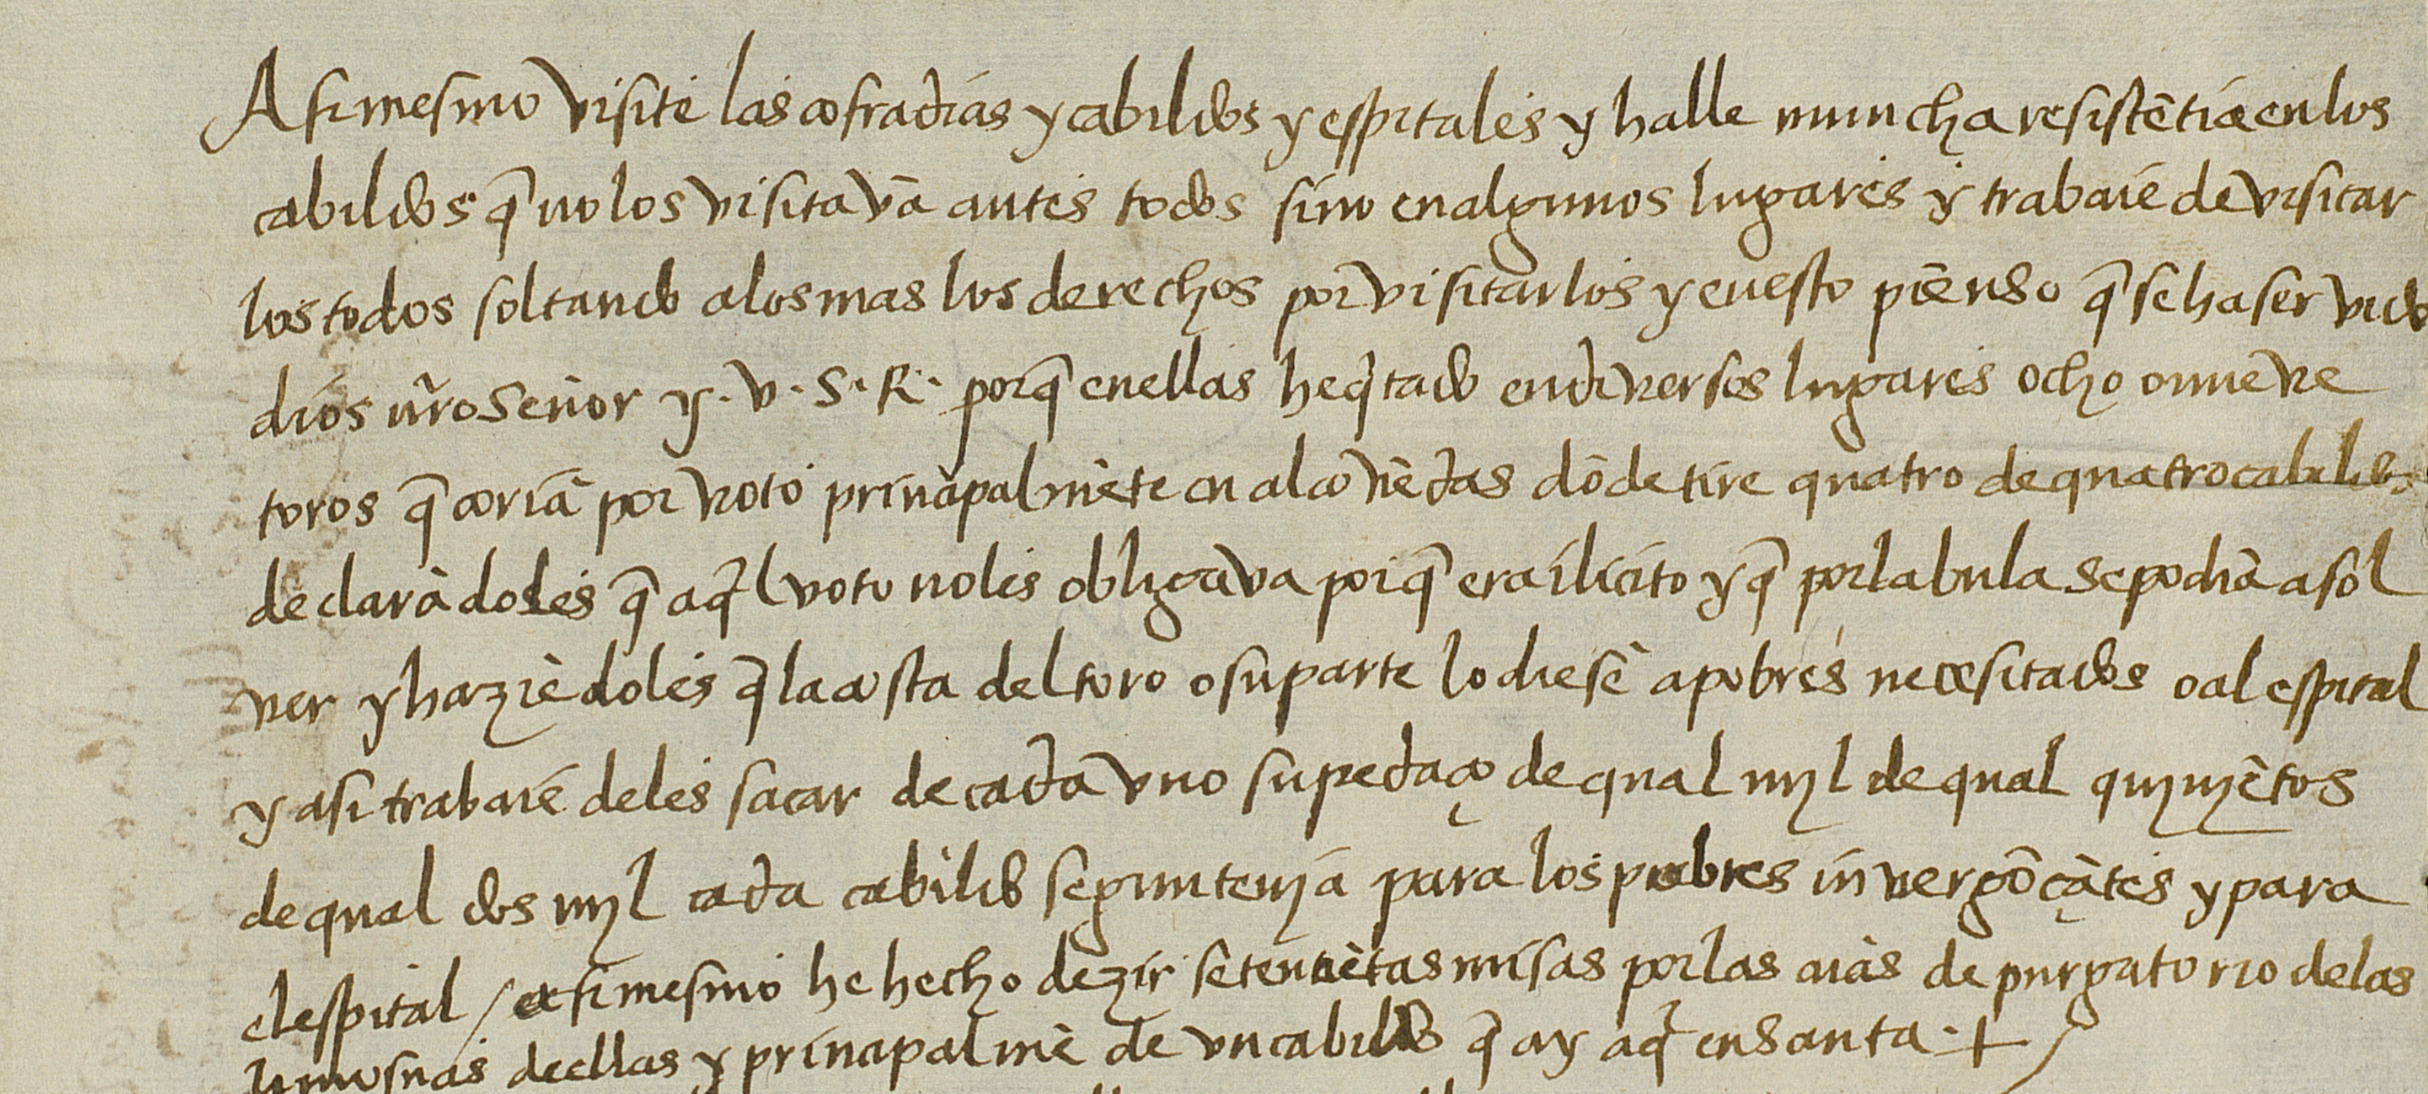 Asimesmo visite las cofradias y cabildos y espitales y halle muncha resistẽtia en los
cabildos q̃ no los visitavã antes todos sino en algunos lugares y trabaié de visitar
los todos soltando a los mas los derechos por visitarlos y en esto piẽnso q̃ se ha servido
dios nr̃o señor y .v.s.R. porq̃ en ellas he q̃tado en diversos lugares ocho o nueve
toros q̃ corriã por voto principalmẽte en alcovẽdas dõde tire quatro de quatro cabildos
declarãdoles q̃ aq̃l voto no les obligava porq̃ era ilicito y q̃ por la bula se podiã asol
ver y haziẽdoles q̃ la costa del toro o su parte lo diesẽ a pobres necesitados o al espital
y asi trabaié de les sacar de cada uno su pedaço de qual myl de qual quinyẽtos
de qual dos myl cada cabildo segun tenyã para los pobres invergõçãtes y para
el espital / asimesmo he hecho dezir setenciẽtas misas por las aı̃as de purgatorio de las
limosnas de ellas y principalmẽ de un cabildo q̃ ay aq̃ en santa +/